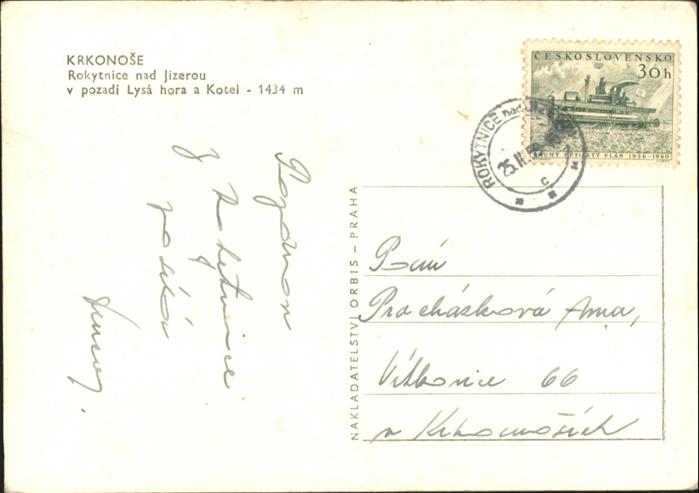 KRKONOŠE
Rokytnice nad Jizerou
v pozadí Lysá hora a Kotel - 1434 m
ČESKOSLOVENSKO
30h
DRUHÝ PĚTILETÝ PLÁN 1956-1960
ROKYTNICE nad
25.II.
c
NAKLADATELSTVÍ ORBIS – PRAHA
Pozdrav
z Rokytnice
posílá
Paní
Procházková Anna,
Vítkovice 66
v Krkonoších